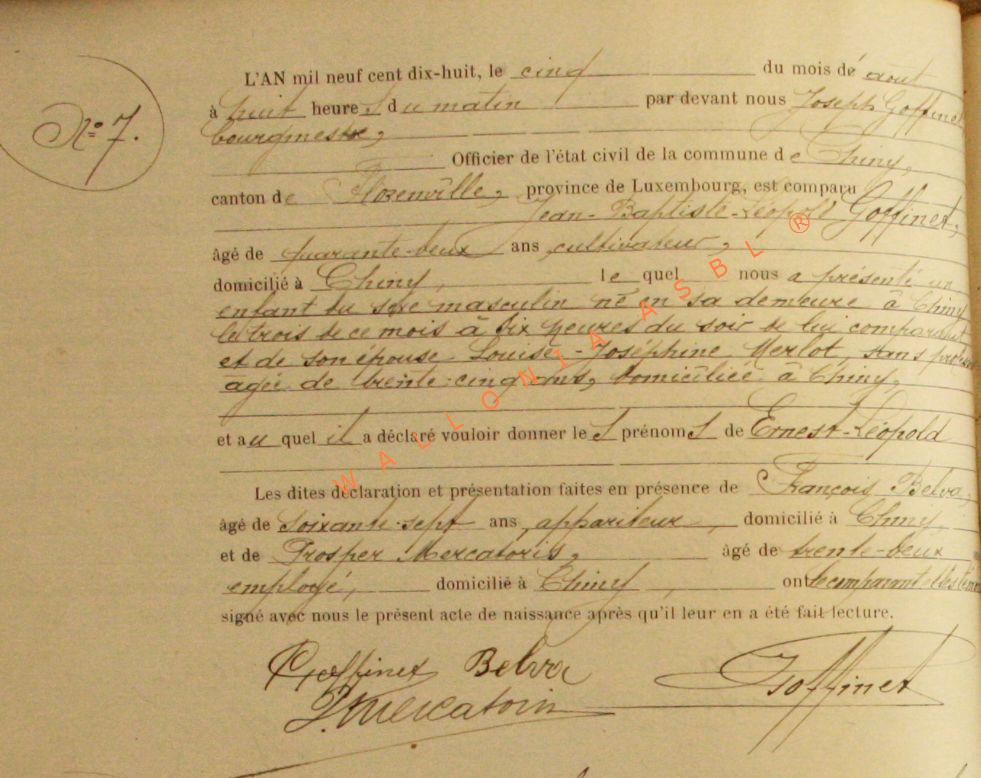 N° 7.
L'AN mil neuf cent dix-huit, le cinq du mois de août
à huit heures du matin par devant nous Joseph Goffinet
bourgmestre,
Officier de l'état civil de la commune de Chiny,
canton de Florenville, province de Luxembourg, est comparu
Jean-Baptiste-Léopold Goffinet,
âgé de quarante-deux ans, cultivateur,
domicilié à Chiny, lequel nous a présenté un
enfant du sexe masculin né en sa demeure à Chiny
le trois de ce mois à dix heures du soir de lui comparant
et de son épouse Louise-Joséphine Merlot, sans
agée de trente-cinq ans, domiciliée à Chiny,
et au quel il a déclaré vouloir donner les prénoms de Ernest-Léopold
Les dites déclaration et présentation faites en présence de François Belva,
âgé de soixante-sept ans, appariteur, domicilié à Chiny,
et de Prosper Mercatoris, âgé de trente-deux
employé, domicilié à Chiny, ont le comparant et les
signé avec nous le présent acte de naissance après qu'il leur en a été fait lecture.
Goffinet Belva Goffinet
P Mercatoris
WALLONIA ASBL ®